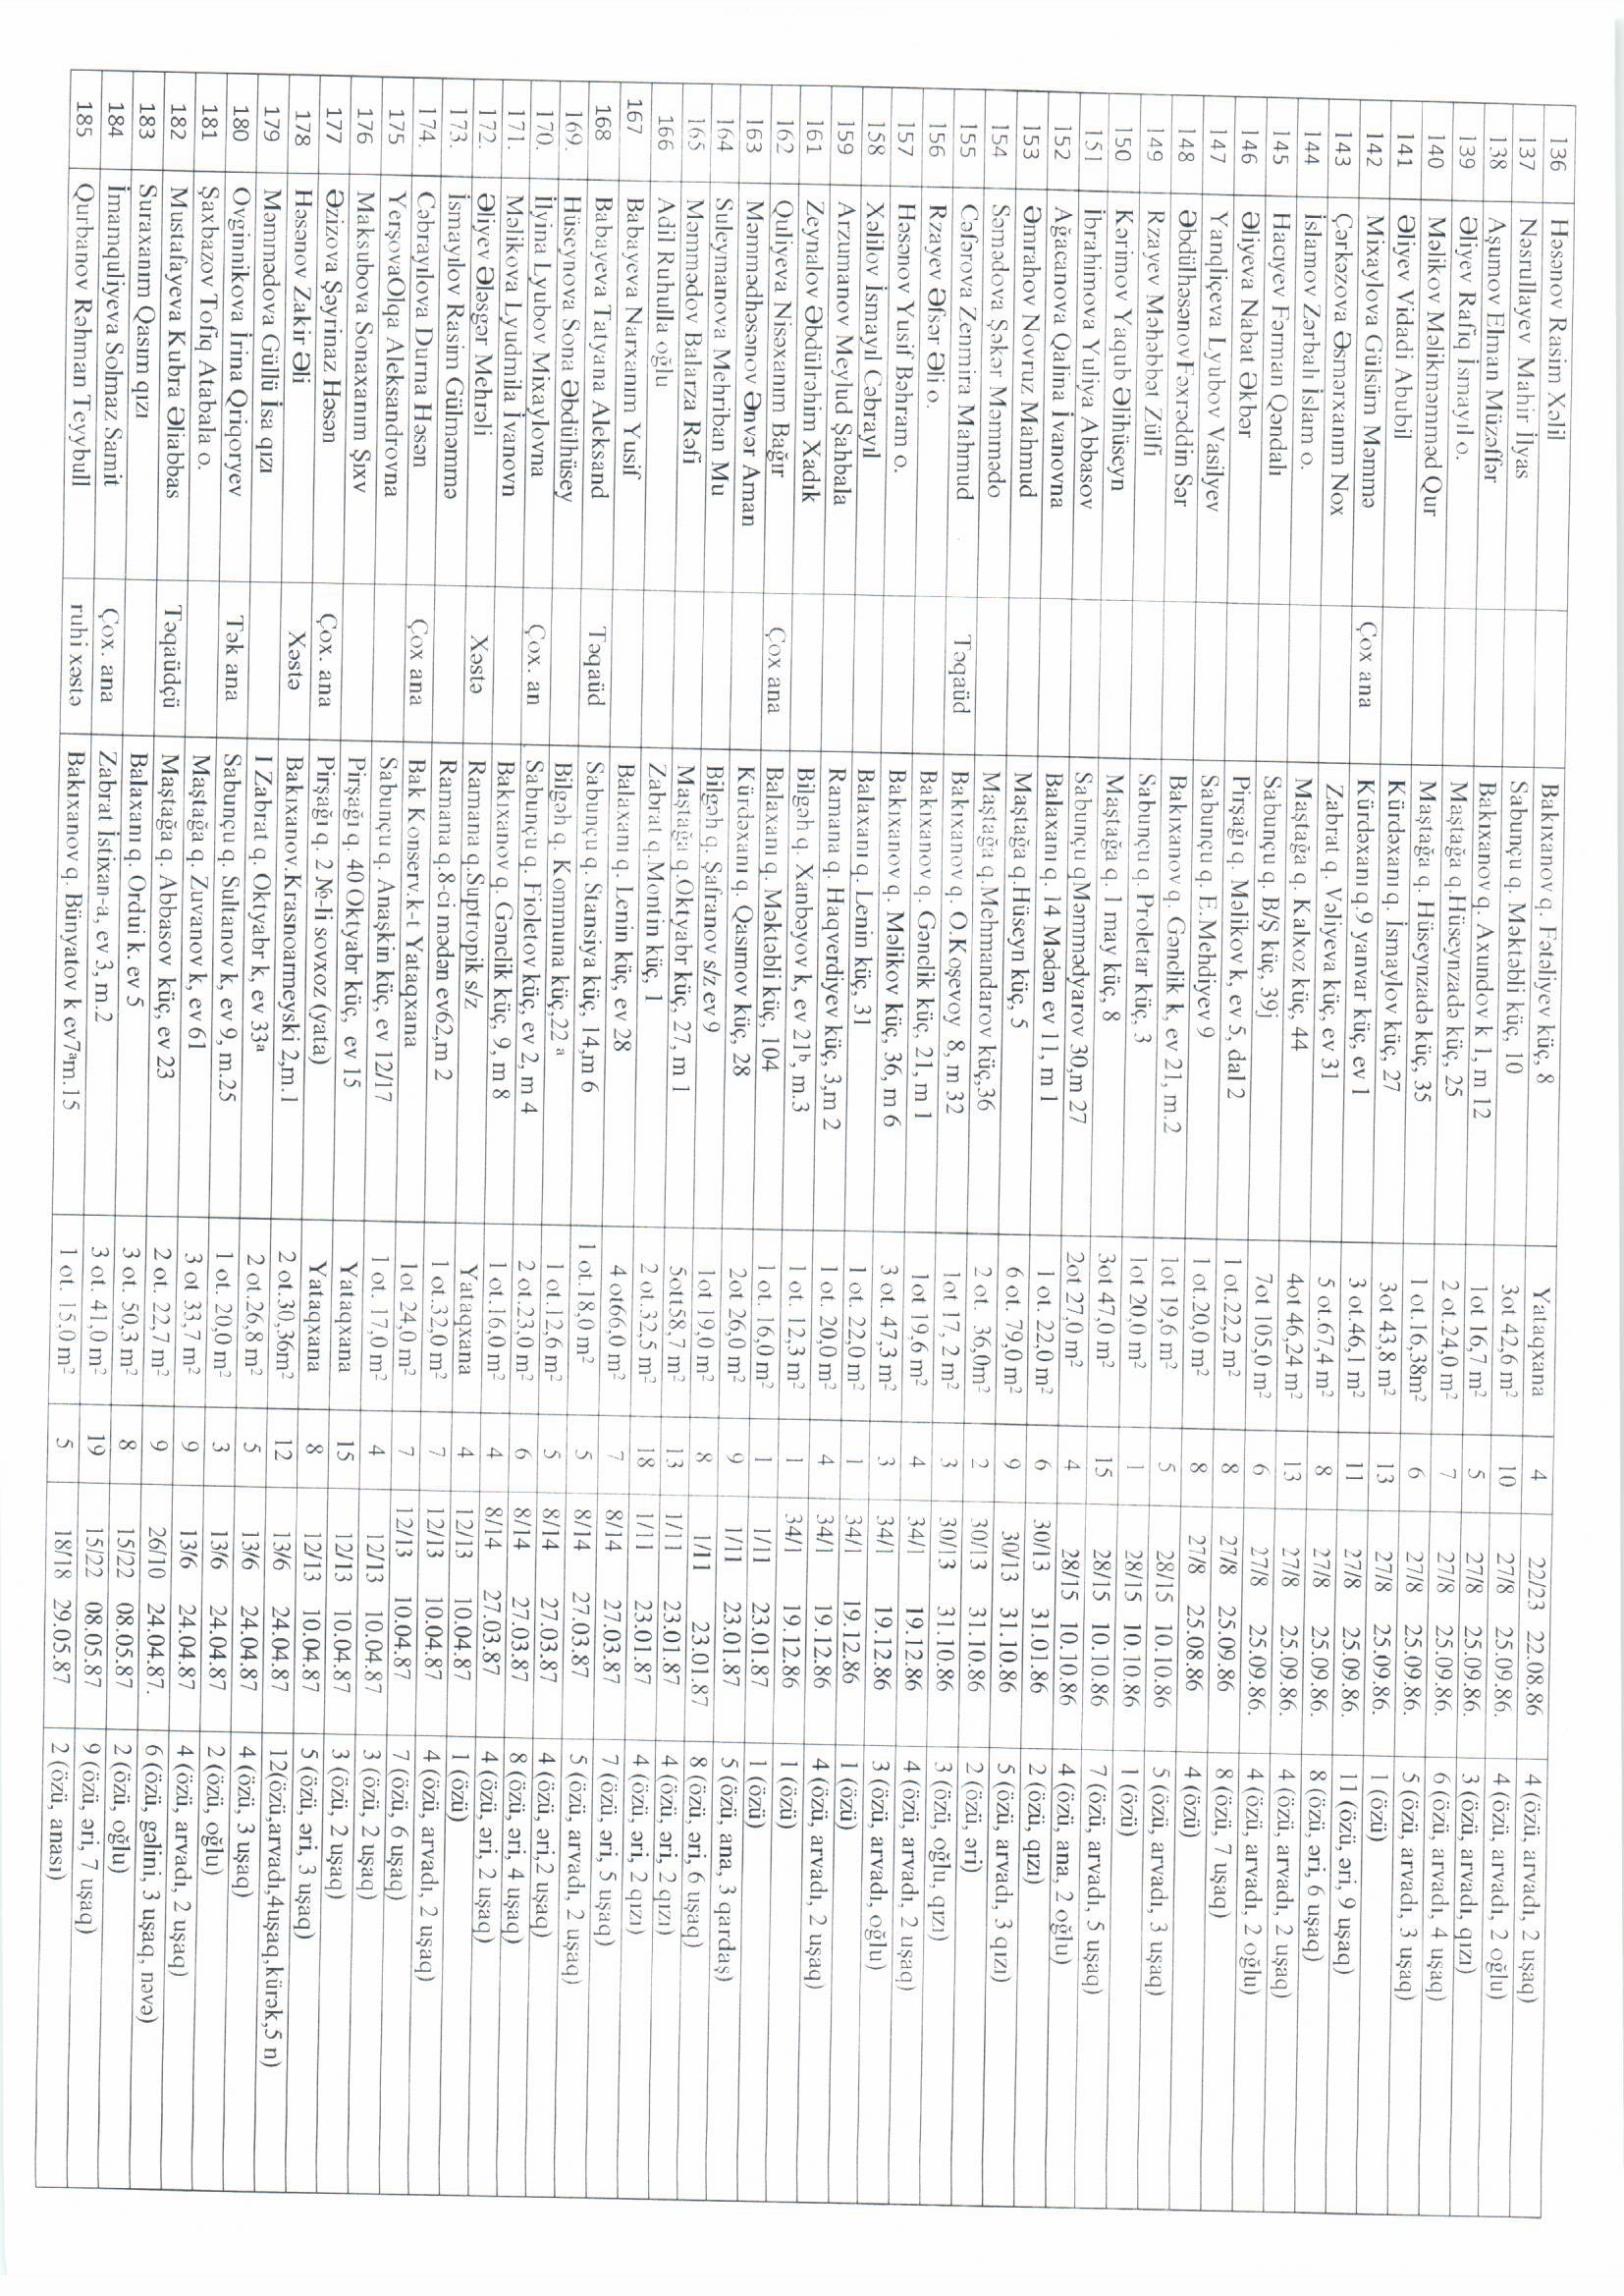 136 Həsənov Rasim Xəlil Bakıxanov q. Fətəliyev küç, 8 Yataqxana 4 22/23 22.08.86 4 (özü, arvadı, 2 uşaq)
137 Nəsrullayev Mahir İlyas Sabunçu q. Məktəbli küç, 10 3ot 42,6 m² 10 27/8 25.09.86. 4 (özü, arvadı, 2 oğlu)
138 Aşumov Elman Müzəffər Bakıxanov q. Axundov k 1, m 12 1ot 16,7 m² 5 27/8 25.09.86. 3 (özü, arvadı, qızı)
139 Əliyev Rafiq İsmayıl o. Maştağa q.Hüseynzadə küç, 25 2 ot.24,0 m² 7 27/8 25.09.86. 6 (özü, arvadı, 4 uşaq)
140 Məlikov Məlikməmməd Qur Maştağa q. Hüseynzadə küç, 35 1 ot.16,38m² 6 27/8 25.09.86. 5 (özü, arvadı, 3 uşaq)
141 Əliyev Vidadi Abubil Kürdəxanı q. İsmaylov küç, 27 3ot 43,8 m² 13 27/8 25.09.86. 1 (özü)
142 Mixaylova Gülsüm Məmmə Çox ana Kürdəxanı q.9 yanvar küç, ev 1 3 ot.46,1 m² 11 27/8 25.09.86. 11 (özü, əri, 9 uşaq)
143 Çərkəzova Əsmərxanım Nox Zabrat q. Vəliyeva küç, ev 31 5 ot.67,4 m² 8 27/8 25.09.86. 8 (özü, əri, 6 uşaq)
144 İslamov Zərbalı İslam o. Maştağa q. Kalxoz küç, 44 4ot 46,24 m² 13 27/8 25.09.86. 4 (özü, arvadı, 2 uşaq)
145 Hacıyev Fərman Qəndalı Sabunçu q. B/Ş küç, 39j 7ot 105,0 m² 6 27/8 25.09.86. 4 (özü, arvadı, 2 oğlu)
146 Əliyeva Nabat Əkbər Pirşağı q. Məlikov k, ev 5, dal 2 1 ot.22,2 m² 8 27/8 25.09.86 8 (özü, 7 uşaq)
147 Yanqlıçeva Lyubov Vasilyev Sabunçu q. E.Mehdiyev 9 1 ot.20,0 m² 8 27/8 25.08.86 4 (özü)
148 ƏbdülhəsənovFəxrəddin Sər Bakıxanov q. Gənclik k, ev 21, m.2 1ot 19,6 m² 5 28/15 10.10.86 5 (özü, arvadı, 3 uşaq)
149 Rzayev Məhəbbət Zülfi Sabunçu q. Proletar küç, 3 1ot 20,0 m² 1 28/15 10.10.86 1 (özü)
150 Kərimov Yaqub Əlihüseyn Maştağa q. 1 may küç, 8 3ot 47,0 m² 15 28/15 10.10.86 7 (özü, arvadı, 5 uşaq)
151 İbrahimova Yuliya Abbasov Sabunçu qMəmmədyarov 30,m 27 2ot 27,0 m² 4 28/15 10.10.86 4 (özü, ana, 2 oğlu)
152 Ağacanova Qalina İvanovna Balaxanı q. 14 Mədən ev 11, m 1 1 ot. 22,0 m² 6 30/13 31.01.86 2 (özü, qızı)
153 Əmrahov Novruz Mahmud Maştağa q.Hüseyn küç, 5 6 ot. 79,0 m² 9 30/13 31.10.86 5 (özü, arvadı, 3 qızı)
154 Səmədova Şəkər Məmmədo Maştağa q.Mehmandarov küç,36 2 ot. 36,0m² 2 30/13 31.10.86 2 (özü, əri)
155 Cəfərova Zenmira Mahmud Təqaüd Bakıxanov q. O.Koşevoy 8, m 32 1ot 17, 2 m² 3 30/13 31.10.86 3 (özü, oğlu, qızı)
156 Rzayev Əfsər Əli o. Bakıxanov q. Gənclik küç, 21, m 1 1ot 19,6 m² 4 34/1 19.12.86 4 (özü, arvadı, 2 uşaq)
157 Həsənov Yusif Bəhram o. Bakıxanov q. Məlikov küç, 36, m 6 3 ot. 47,3 m² 3 34/1 19.12.86 3 (özü, arvadı, oğlu)
158 Xəlilov İsmayıl Cəbrayıl Balaxanı q. Lenin küç, 31 1 ot. 22,0 m² 1 34/1 19.12.86 1 (özü)
159 Arzumanov Meylud Şahbala Ramana q. Haqverdiyev küç, 3,m 2 1 ot. 20,0 m² 4 34/1 19.12.86 4 (özü, arvadı, 2 uşaq)
161 Zeynalov Əbdülrəhim Xadık Bilgəh q. Xanbəyov k, ev 21ᵇ, m.3 1 ot. 12,3 m² 1 34/1 19.12.86 1 (özü)
162 Quliyeva Nisəxanım Bağır Çox ana Balaxanı q. Məktəbli küç, 104 1 ot. 16,0 m² 1 1/11 23.01.87 1 (özü)
163 Məmmədhəsənov Ənvər Aman Kürdəxanı q. Qasımov küç, 28 2ot 26,0 m² 9 1/11 23.01.87 5 (özü, ana, 3 qardaş)
164 Suleymanova Mehriban Mu Bilgəh q. Şafranov s/z ev 9 1ot 19,0 m² 8 1/11 23.01.87 8 (özü, əri, 6 uşaq)
165 Məmmədov Balarza Rəfi Maştağa q.Oktyabr küç, 27, m 1 5ott58,7 m² 13 1/11 23.01.87 4 (özü, əri, 2 qızı)
166 Adil Ruhulla oğlu Zabrat q.Montin küç, 1 2 ot.32,5 m² 18 1/11 23.01.87 4 (özü, əri, 2 qızı)
167 Babayeva Narxanım Yusif Balaxanı q. Lenin küç, ev 28 4 ot66,0 m² 7 8/14 27.03.87 7 (özü, əri, 5 uşaq)
168 Babayeva Tatyana Aleksand Təqaüd Sabunçu q. Stansiya küç, 14,m 6 1 ot.18,0 m² 5 8/14 27.03.87 5 (özü, arvadı, 2 uşaq)
169. Hüseynova Sona Əbdülhüsey Bilgəh q. Kommuna küç,22 ª 1 ot.12,6 m² 5 8/14 27.03.87 4 (özü, əri,2 uşaq)
170. İlyina Lyubov Mixaylovna Çox. an Sabunçu q. Fioletov küç, ev 2, m 4 2 ot.23,0 m² 6 8/14 27.03.87 8 (özü, əri, 4 uşaq)
171. Məlikova Lyudmila İvanovn Bakıxanov q. Gənclik küç, 9, m 8 1 ot.16,0 m² 4 8/14 27.03.87 4 (özü, əri, 2 uşaq)
172. Əliyev Ələsgər Mehrəli Xəstə Ramana q.Suptropik s/z Yataqxana 4 12/13 10.04.87 1 (özü)
173. İsmayılov Rasim Gülməmmə Ramana q.8-ci mədən ev62,m 2 1 ot.32,0 m² 7 12/13 10.04.87 4 (özü, arvadı, 2 uşaq)
174. Cəbrayılova Durna Həsən Çox ana Bak Konserv.k-t Yataqxana 1ot 24,0 m² 7 12/13 10.04.87 7 (özü, 6 uşaq)
175 YerşovaOlqa Aleksandrovna Sabunçu q. Anaşkin küç, ev 12/17 1 ot. 17,0 m² 4 12/13 10.04.87 3 (özü, 2 uşaq)
176 Maksubova Sonaxanım Şıxv Pirşağı q. 40 Oktyabr küç, ev 15 Yataqxana 15 12/13 10.04.87 3 (özü, 2 uşaq)
177 Əzizova Şəyrinaz Həsən Çox. ana Pirşağı q. 2 №-li sovxoz (yata) Yataqxana 8 12/13 10.04.87 5 (özü, əri, 3 uşaq)
178 Həsənov Zakir Əli Xəstə Bakıxanov.Krasnoarmeyski 2,m.1 2 ot.30,36m² 12 13/6 24.04.87 12(özü,arvadı,4uşaq,kürək,5 n)
179 Məmmədova Güllü İsa qızı I Zabrat q. Oktyabr k, ev 33ª 2 ot.26,8 m² 5 13/6 24.04.87 4 (özü, 3 uşaq)
180 Ovginnikova İrina Qriqoryev Tək ana Sabunçu q. Sultanov k, ev 9, m.25 1 ot. 20,0 m² 3 13/6 24.04.87 2 (özü, oğlu)
181 Şaxbazov Tofiq Atabala o. Maştağa q. Zuvanov k, ev 61 3 ot 33,7 m² 9 13/6 24.04.87 4 (özü, arvadı, 2 uşaq)
182 Mustafayeva Kubra Əliabbas Təqaüdçü Maştağa q. Abbasov küç, ev 23 2 ot. 22,7 m² 9 26/10 24.04.87. 6 (özü, gəlini, 3 uşaq, nəvə)
183 Suraxanım Qasım qızı Balaxanı q. Ordui k. ev 5 3 ot. 50,3 m² 8 15/22 08.05.87 2 (özü, oğlu)
184 İmamquliyeva Solmaz Samit Çox. ana Zabrat İstixan-a, ev 3, m.2 3 ot. 41,0 m² 19 15/22 08.05.87 9 (özü, əri, 7 uşaq)
185 Qurbanov Rəhman Teyybull ruhi xəstə Bakıxanov q. Bünyatov k ev7ªm.15 1 ot. 15,0 m² 5 18/18 29.05.87 2 (özü, anası)